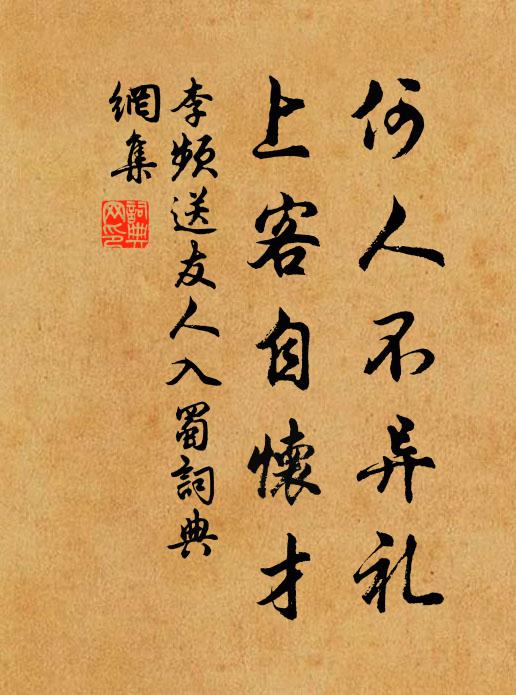 何人不异礼
上客自懷才
李頻送友人入蜀詞典
網集
詞典
网印